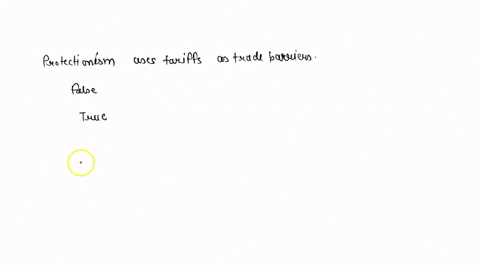 Protectionism uses tariffs as trade barriers.
False
True